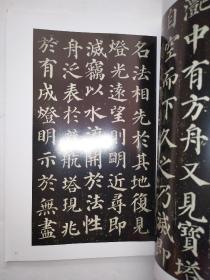 灩中有方舟又見寶塔
自空而下久之乃滅即
名法相先於其地復見
燈光遠望則明近尋即
滅竊以水流開於法性
舟泛表於慈航塔現兆
於有成燈明示於無盡